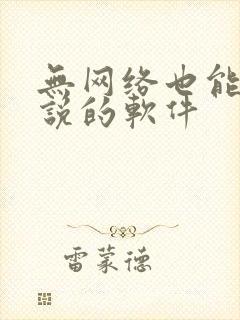 無网络也能
説的軟件
雷蒙德